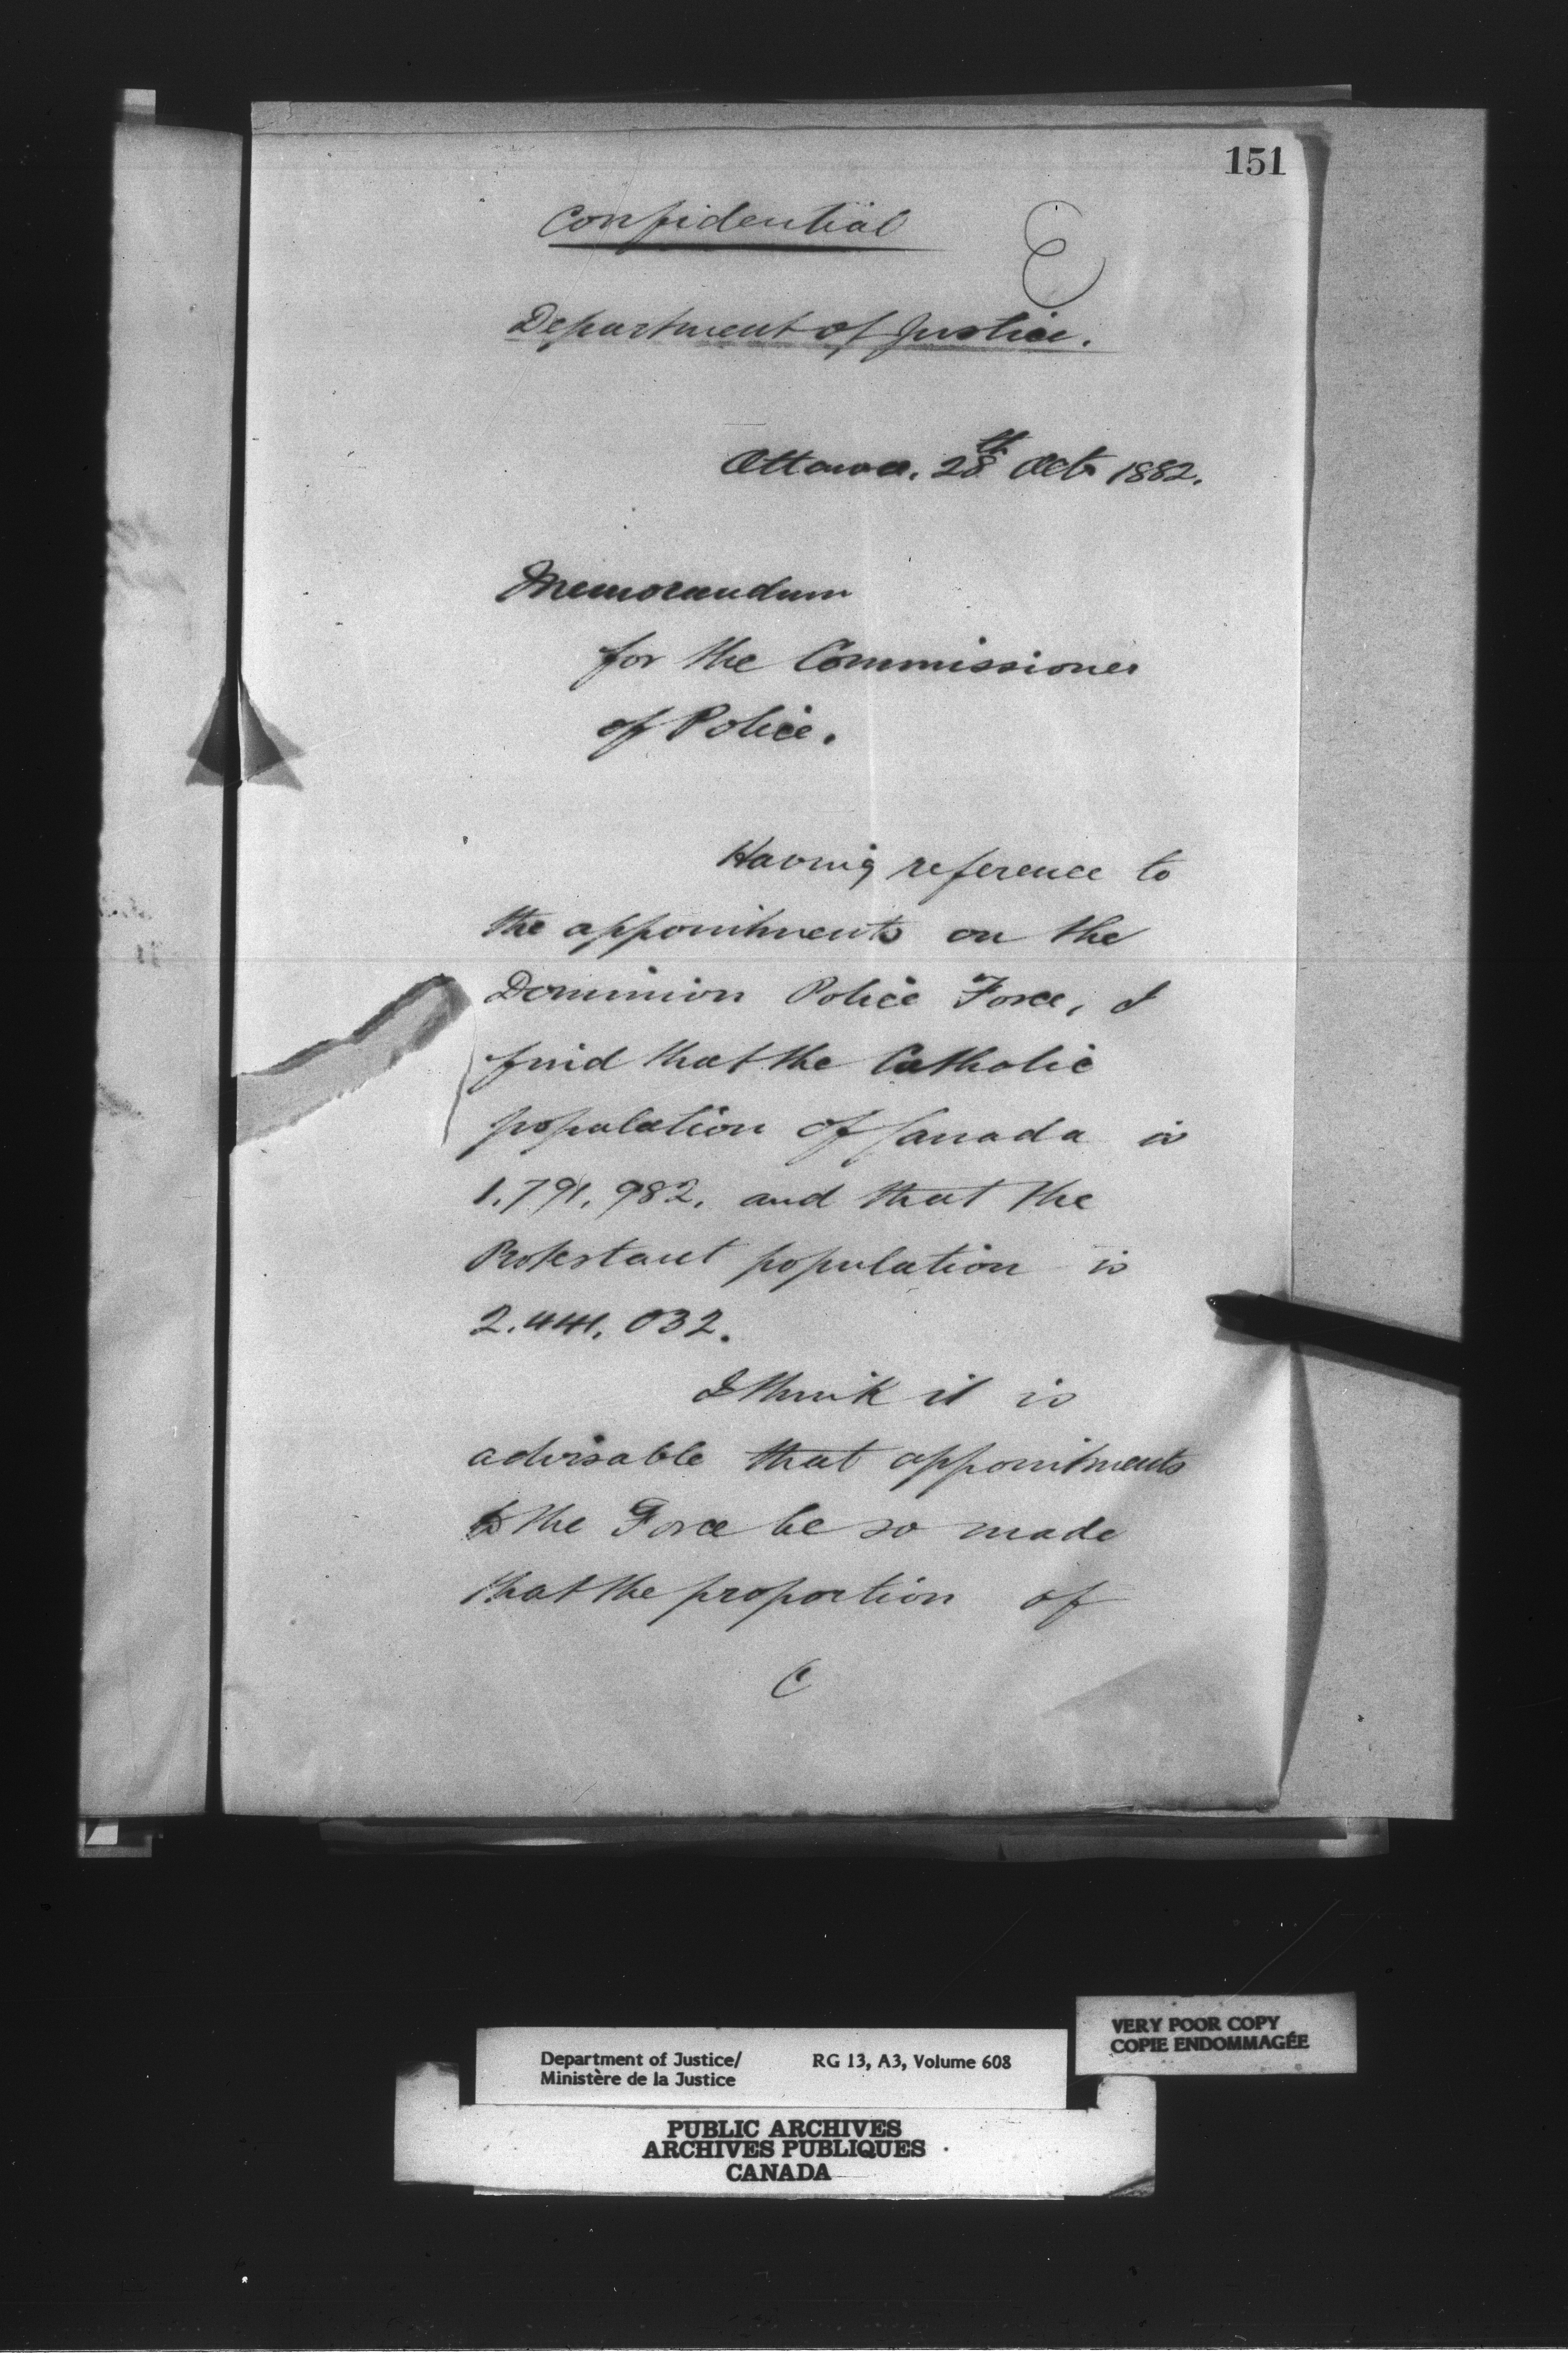 151
Confidential
Department of Justice.
Ottawa. 28th Octr 1882.
Memorandum
for the Commissioner
of Police.
Having reference to
the appointments on the
Dominion Police Force, I
find that the Catholic
population of Canada is
1.791.982. and that the
Protestant population is
2.441.032.
I think it is
advisable that appointments
to the Force be so made
that the proportion of
VERY POOR COPY
COPIE ENDOMMAGÉE
Department of Justice/ RG 13, A3, Volume 608
Ministère de la Justice
PUBLIC ARCHIVES
ARCHIVES PUBLIQUES
CANADA